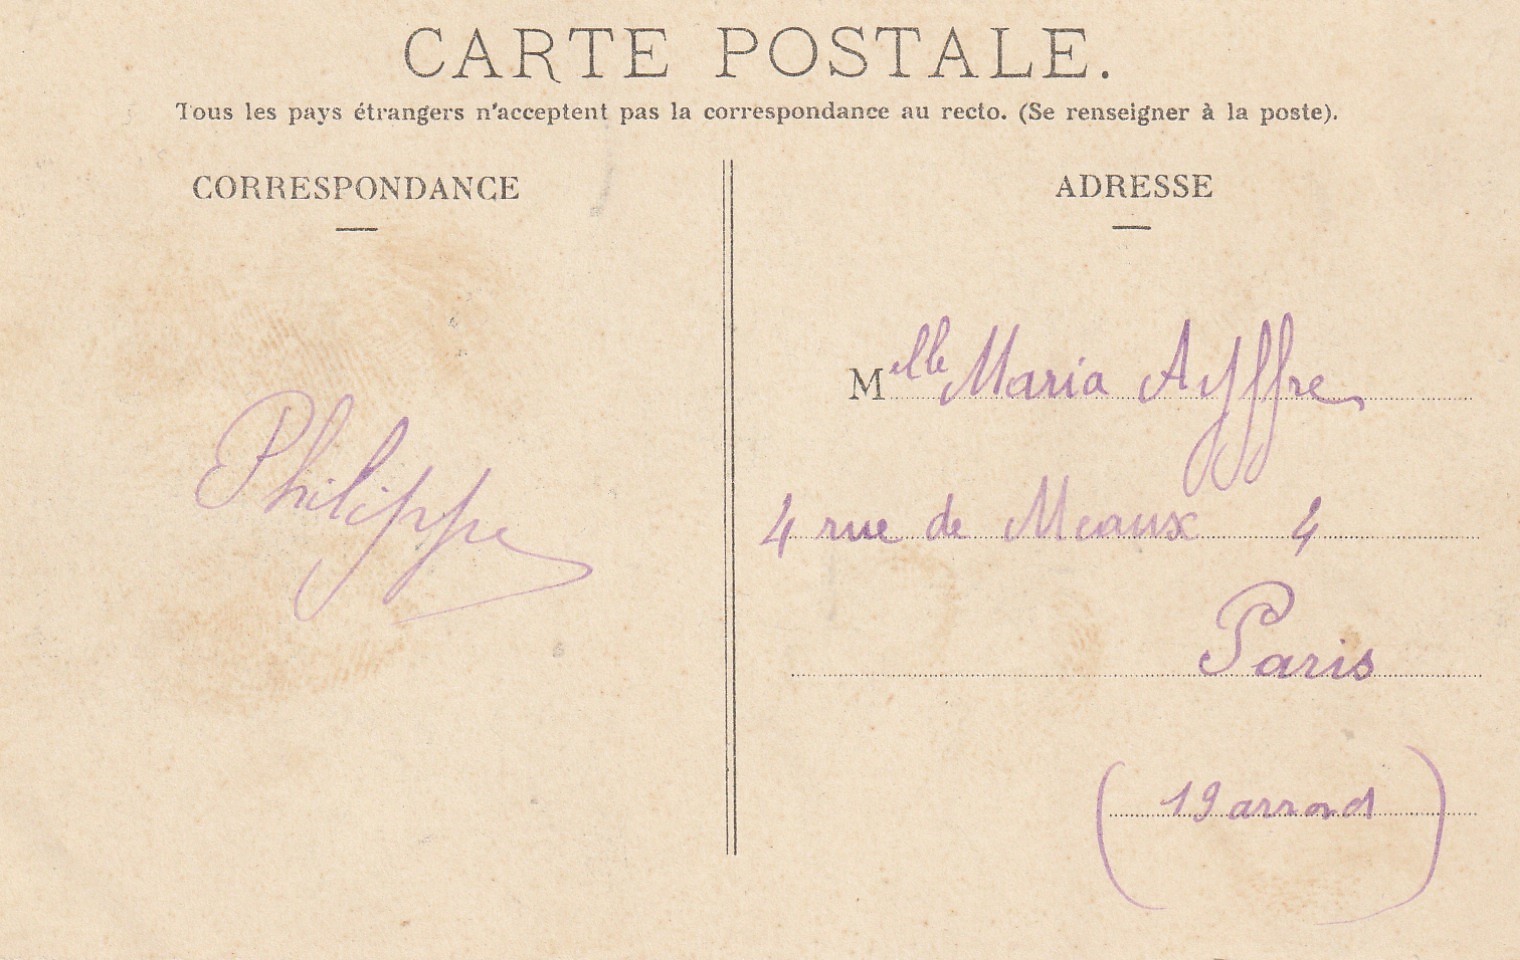 CARTE POSTALE.
Tous les pays étrangers n'acceptent pas la correspondance au recto. (Se renseigner à la poste).
CORRESPONDANCE
Philippe
ADRESSE
Melle Maria Ayffre
4 rue de Meaux 4
Paris
(19 arrond)